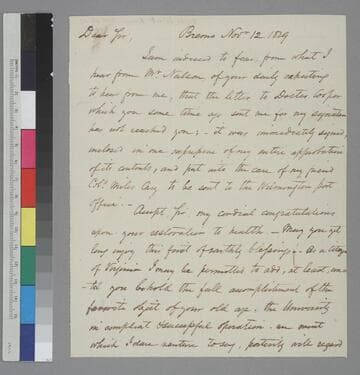 Dear Sir, Bremo Novr. 12. 1819
I am induced to fear, from what I
hear from Mr. Nelson, of your daily expecting
to hear from me, that the letter to Doctor Cooper
which you some time ago sent me for my signature
has not reached you; - it was immediately signed,
inclosed in one expressive of my entire approbation
of its contents, and put into the care of my friend
Col. Miles Cary to be sent to the Wilmington post
office. -
Accept Sir my cordial congratulations
upon your restoration to health - May you yet
long enjoy this first of earthly blessings; - As a citizen
of Virginia I may be permitted to add, at least, un=
til you behold the full accomplishment of the
favorite object of your old age, the University
in compleat & successful operation. an event
which I dare venture to say, posterity will regard